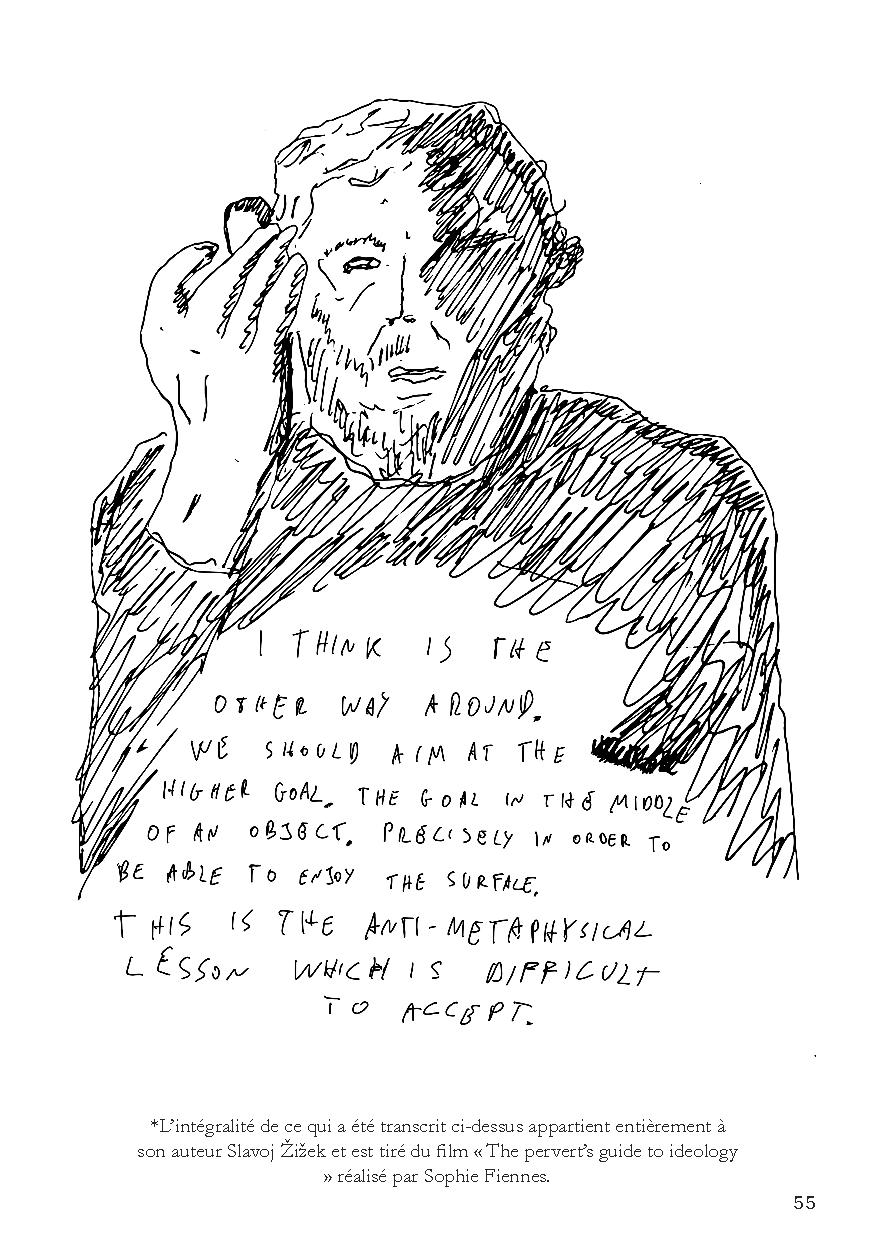 I THINK IS THE
OTHER WAY AROUND.
WE SHOULD AIM AT THE
HIGHER GOAL. THE GOAL IN THE MIDDLE
OF AN OBJECT. PRECISELY IN ORDER TO
BE ABLE TO ENJOY THE SURFACE.
THIS IS THE ANTI-METAPHYSICAL
LESSON WHICH IS DIFFICULT
TO ACCEPT.
*L’intégralité de ce qui a été transcrit ci-dessus appartient entièrement à
son auteur Slavoj Žižek et est tiré du film « The pervert’s guide to ideology
» réalisé par Sophie Fiennes.
55